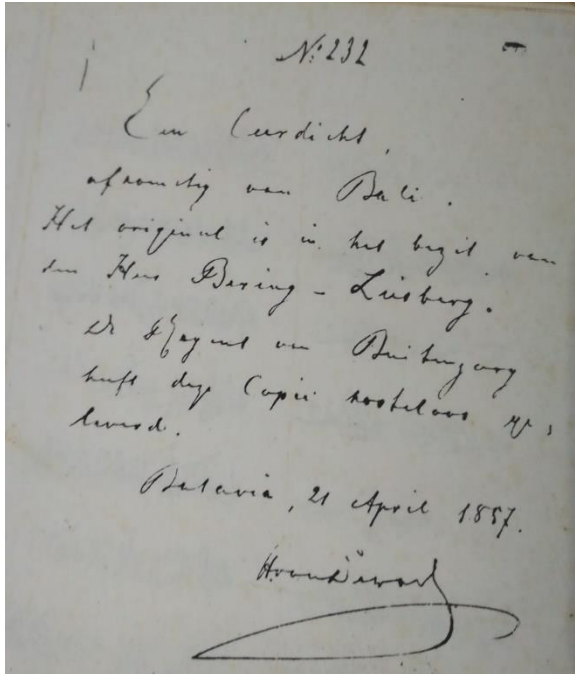 N.º 232
Een Leerdicht,
afkomstig van Bali.
Het origineel is in het bezit van
den Heer Bering - Liisberg.
De Regent van Buitenzorg
heeft deze Copie kosteloos ge-
leverd.
Batavia, 21 April 1857.